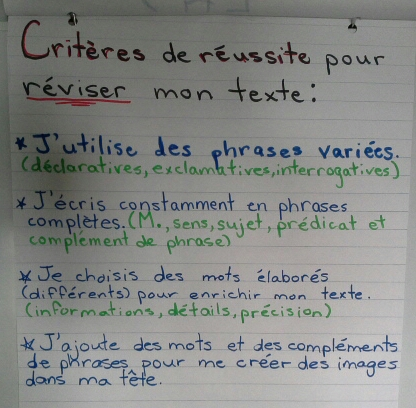 Critères de réussite pour
réviser mon texte:
* J'utilise des phrases variées.
(déclaratives, exclamatives, interrogatives)
* J'écris constamment en phrases
complètes. (M., sens, sujet, prédicat et
complément de phrase)
* Je choisis des mots élaborés
(différents) pour enrichir mon texte.
(informations, détails, précision)
* J'ajoute des mots et des compléments
de phrases pour me créer des images
dans ma tête.